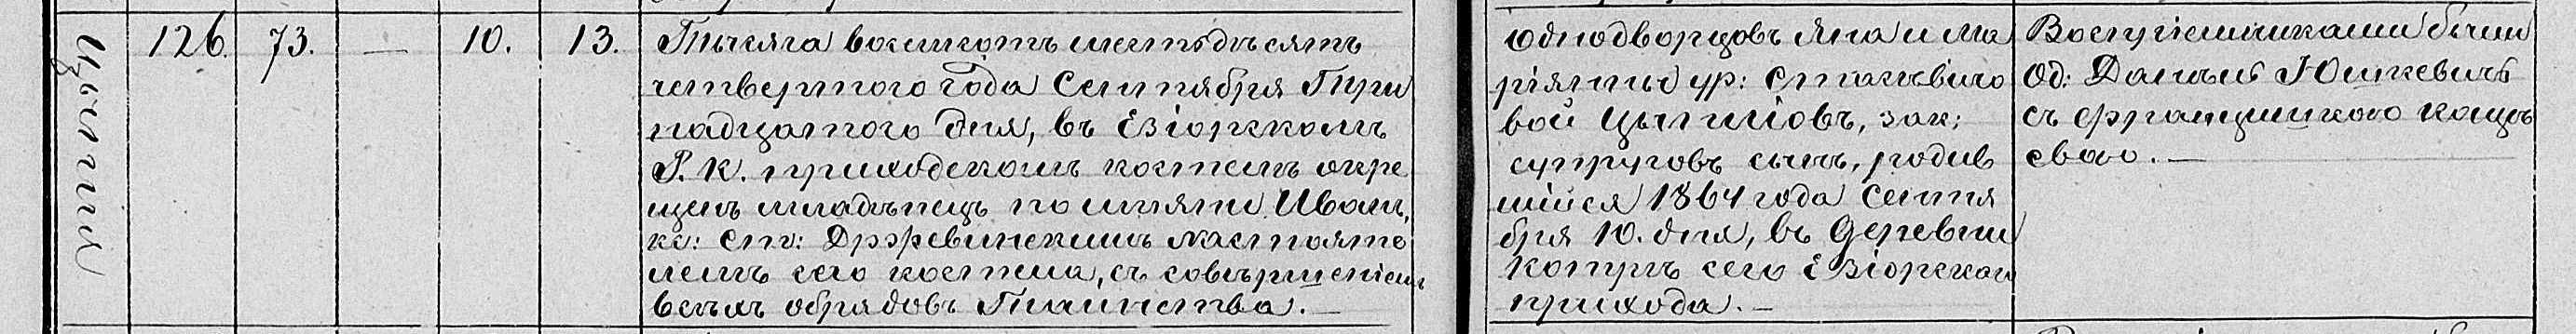 Цыгини
126. 73. — 10. 13.
Тысяча восемсотъ шестьдесятъ
четвертого года Сентября Три
надцатого дня, въ Езіорскомъ
Р. К. приходскомъ костелѣ окре
щенъ младѣнецъ по имяни Иванъ,
кс: Ст: настояте
лемъ сего костела, съ совѣршеніемъ
всѣхъ обрядовъ Таинства. —
однодворцовъ Яна и Ма
ріянны ур:
вой Цыгиновъ, зак:
супруговъ сынъ, родив
шійся 1864 года Сентя
бря 10. дня, въ Деревни
сего Езіорскаго
прихода. —
Воспріемниками были
Од: Юшкевичъ
съ
евою. —